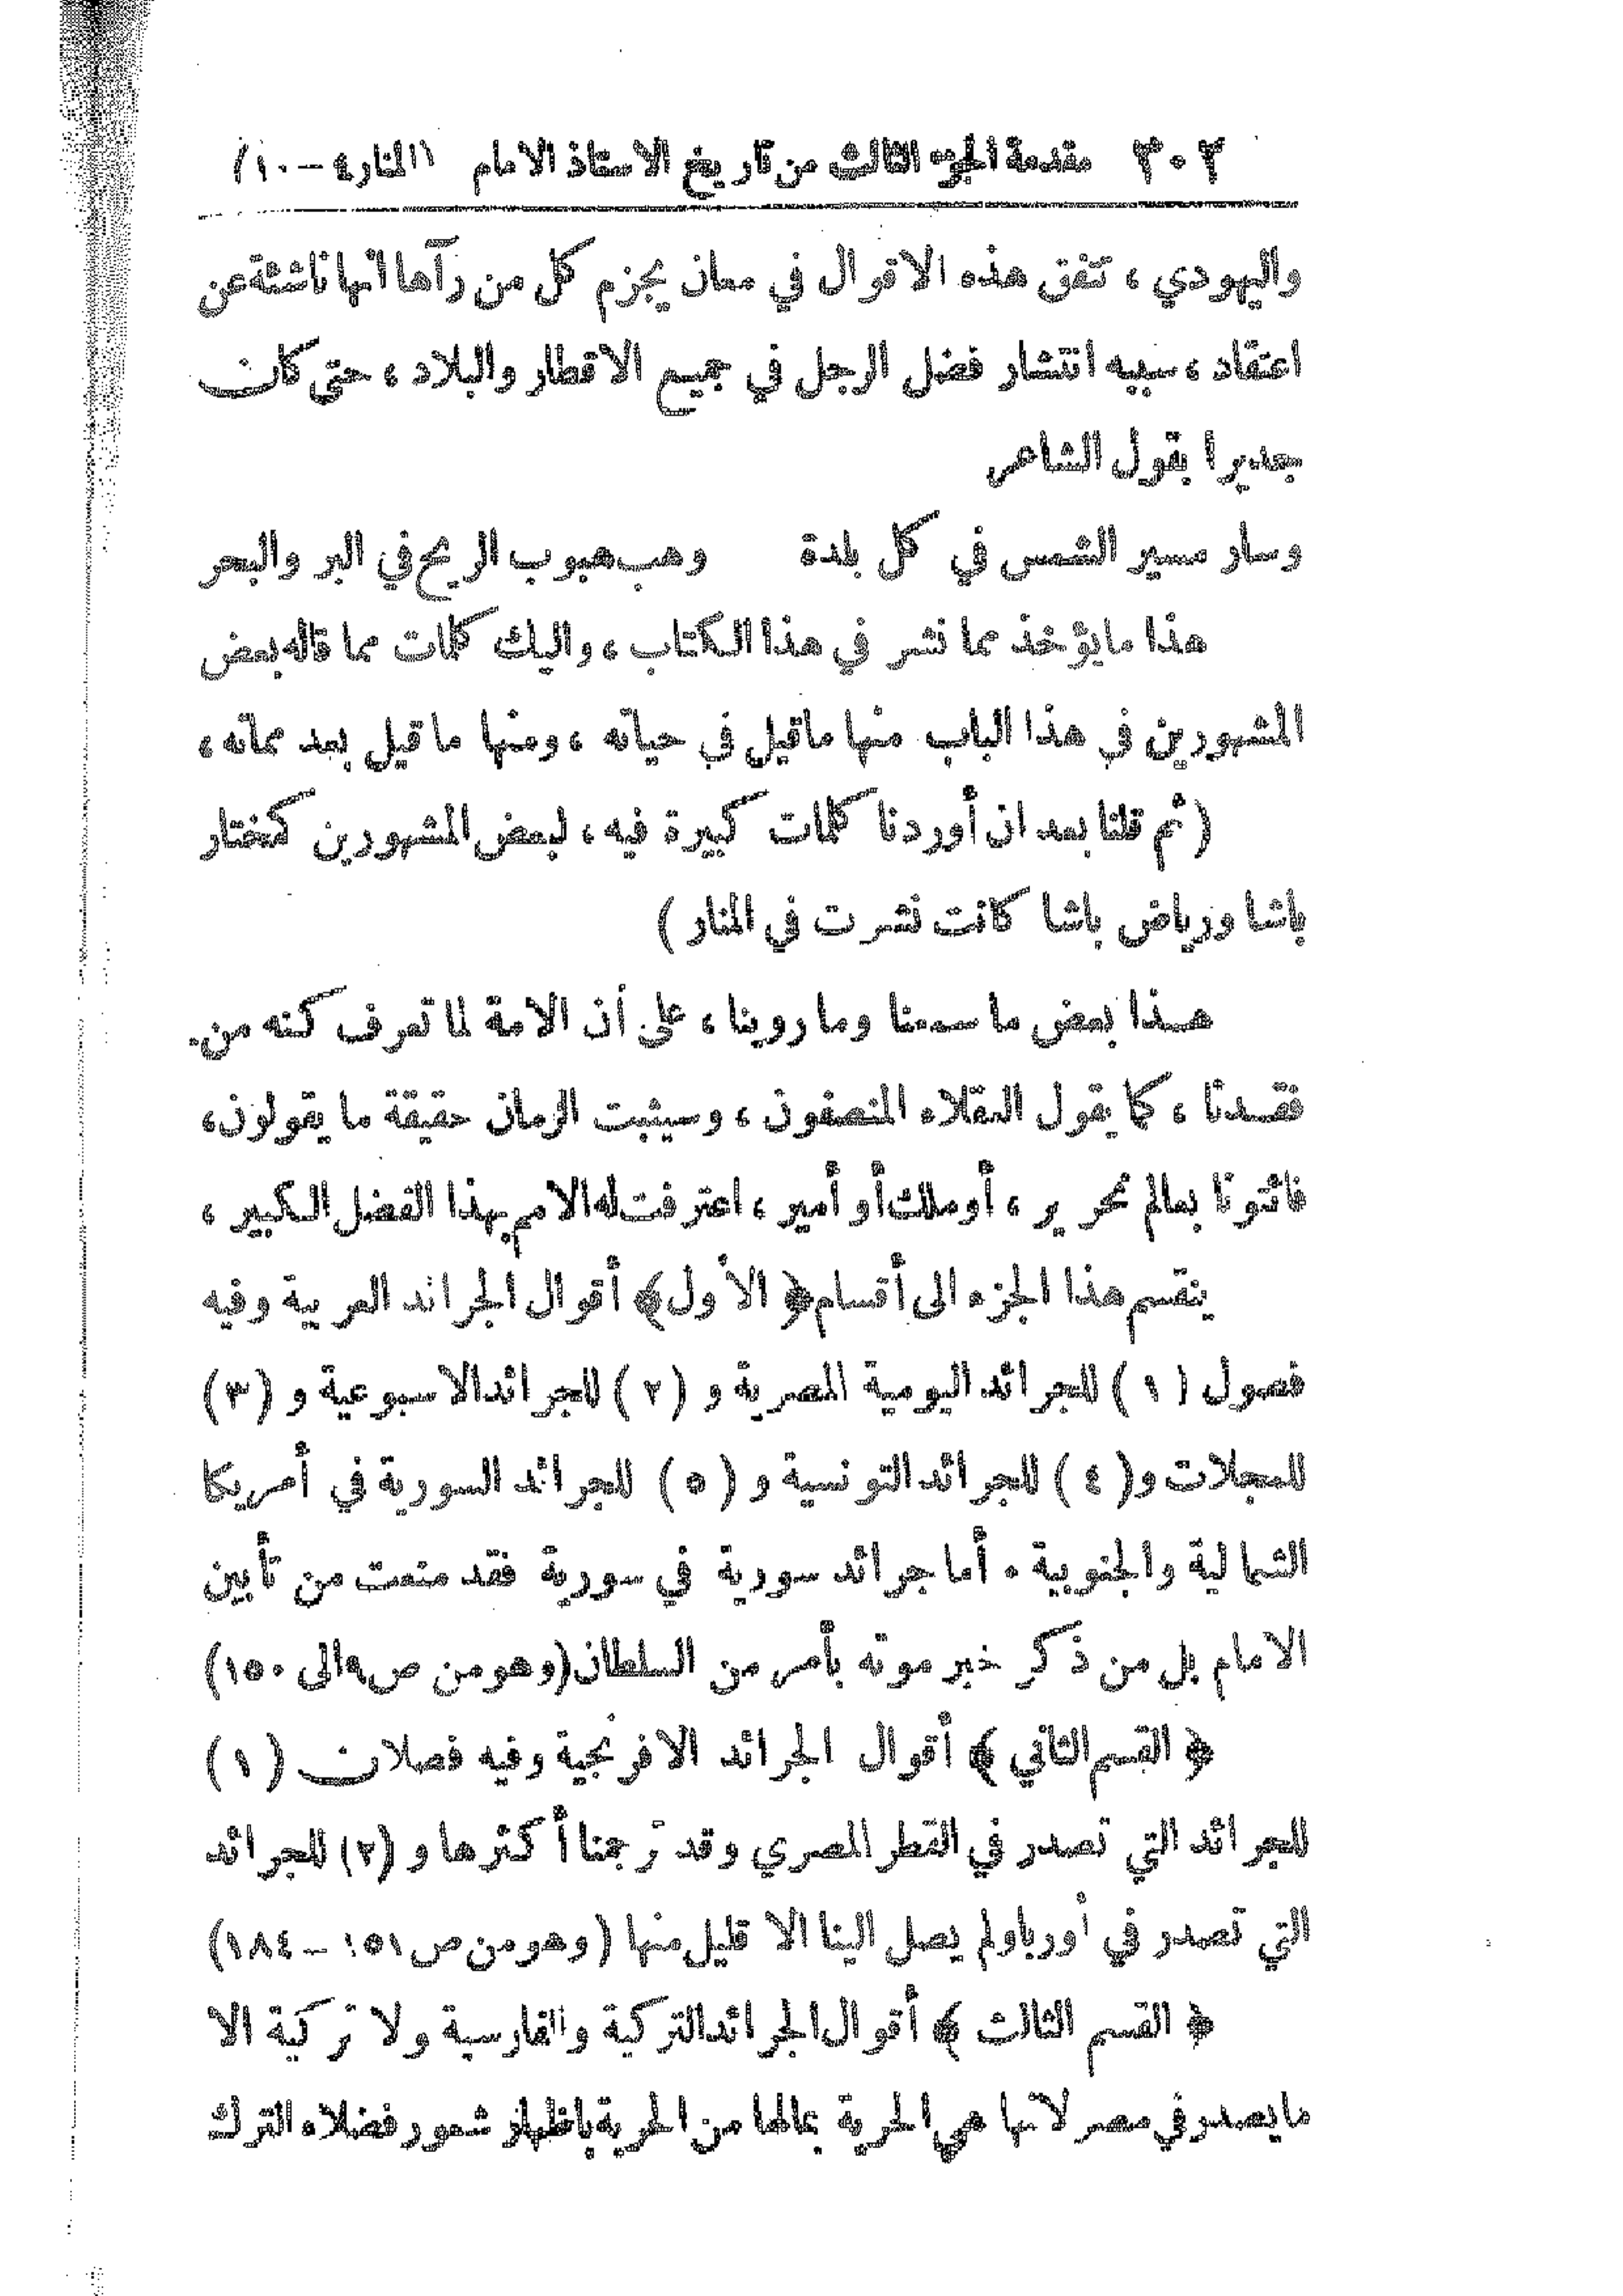 ٣٠٢ مقدمة الجزء الثالث من تاريخ الاستاذ الامام (المنار ٤ – ١٠)
واليهودي ، تتفق هذه الاقوال في معان يجزم كل من رآها انها ناشئة عن
اعتقاد ، سببه انتشار فضل الرجل في جميع الاقطار والبلاد ، حتى كان
جديرا بقول الشاعر
وسار مسير الشمس في كل بلدة وهب هبوب الريح في البر والبحر
هذا مايؤخذ مما نشر في هذا الكتاب ، واليك كلمات مما قاله بعض
المشهورين في هذا الباب منها ماقيل في حياته ، ومنها ماقيل بعد مماته ،
( ثم قلنا بعد ان أوردنا كلمات كبيرة فيه ، لبعض المشهورين كمختار
باشا ورياض باشا كانت نشرت في المنار )
هذا بعض ما سمعنا وما روينا ، على أن الامة لما تعرف كنه من
فقدنا ، كما يقول العقلاء المنصفون ، وسيثبت الزمان حقيقة ما يقولون ،
فائتونا بعالم نحرير ، أو ملك أو أمير ، اعترفت له الامم بهذا الفضل الكبير ،
ينقسم هذا الجزء الى أقسام ﴿ الأول ﴾ أقوال الجرائد العربية وفيه
فصول (١) للجرائد اليومية المصرية و (٢) للجرائد الاسبوعية و (٣)
للمجلات و(٤) للجرائد التونسية و (٥) للجرائد السورية في أمريكا
الشمالية والجنوبية . أما جرائد سورية في سورية فقد منعت من تأبين
الامام بل من ذكر خبر موته بأمر من السلطان (وهو من ص ٩ الى ١٥٠)
﴿ القسم الثاني ﴾ أقوال الجرائد الافرنجية وفيه فصلان (١)
للجرائد التي تصدر في القطر المصري وقد ترجمنا أكثرها و (٢) للجرائد
التي تصدر في أوربا ولم يصل الينا الا قليل منها ( وهو من ص ١٥١ – ١٨٤)
﴿ القسم الثالث ﴾ أقوال الجرائد التركية والفارسية ولا تركية الا
مايصدر في مصر لانها هي الحرية بمالها من الحرية باظهار شعور فضلاء الترك